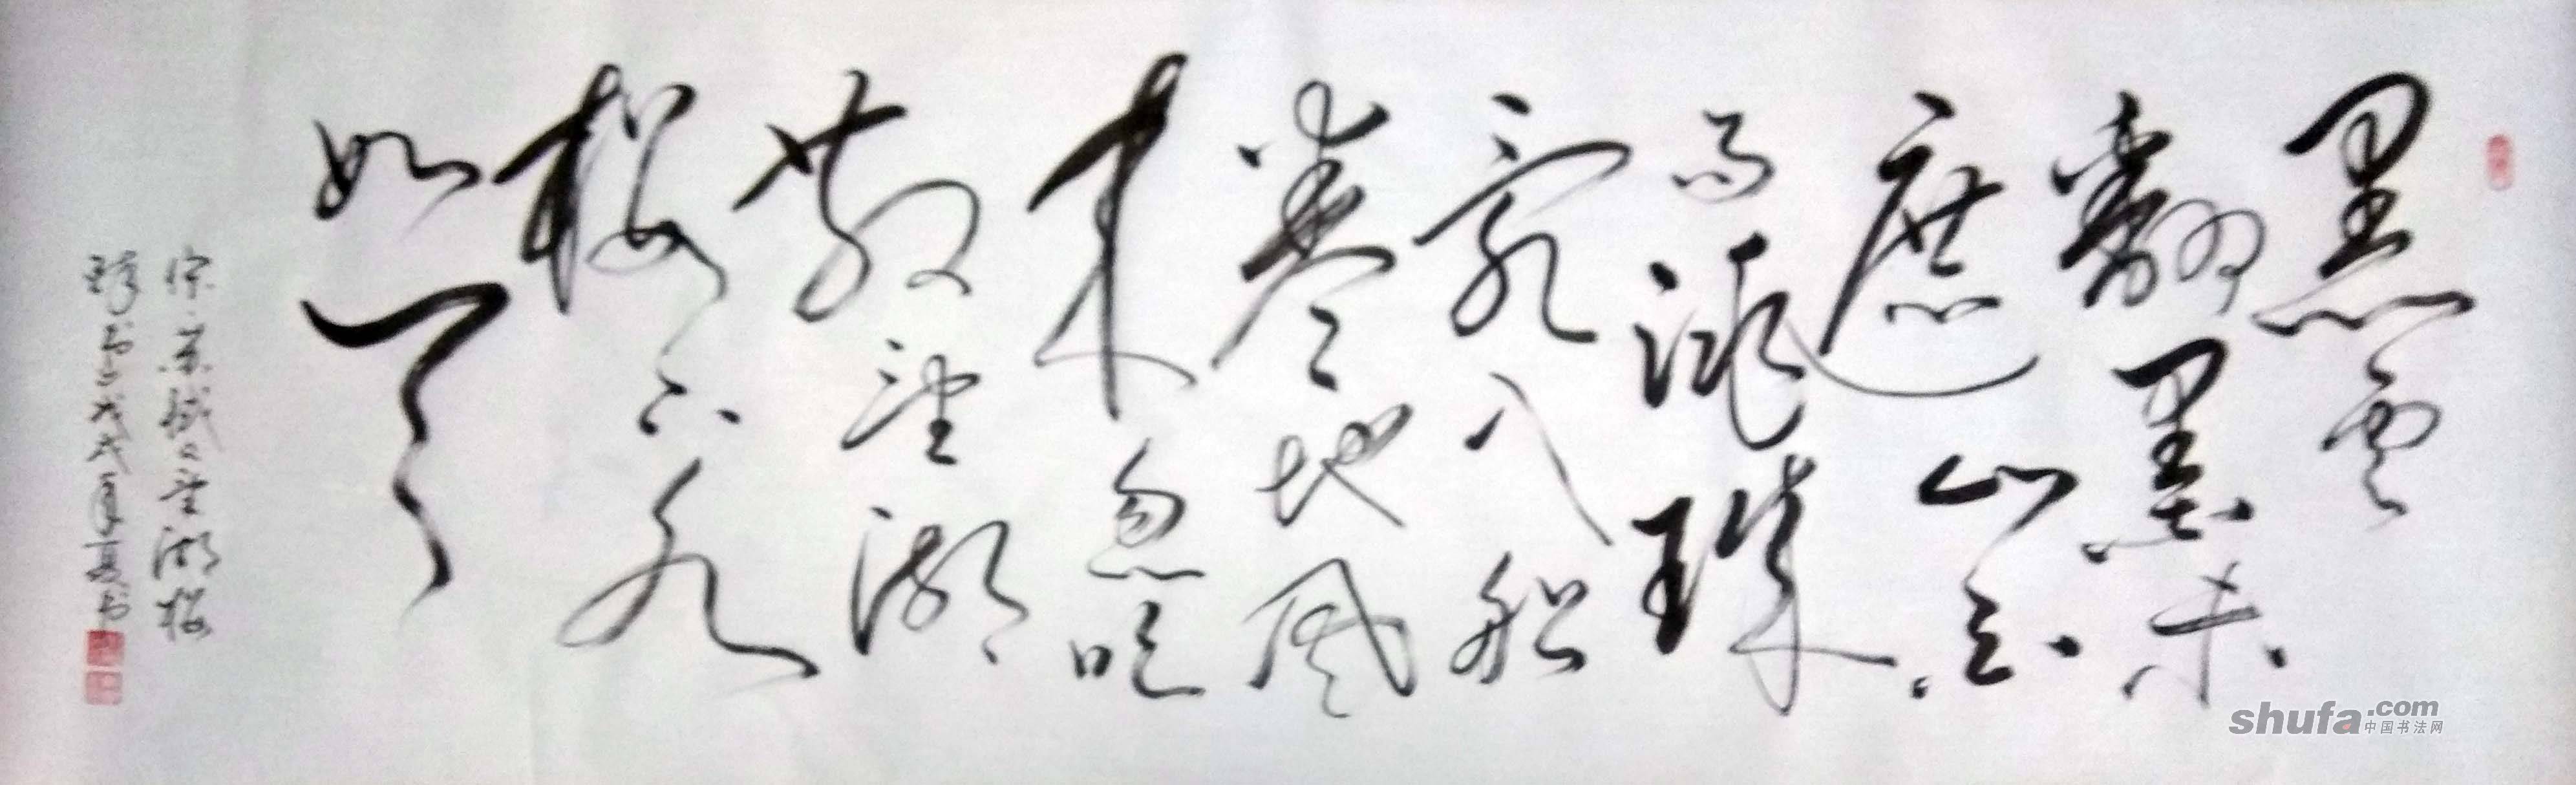 黑云
翻墨未
遮山白
雨跳珠
乱入船
卷地风
来忽吹
散望湖
楼下水
如天
宋苏轼望湖楼
戊戌年夏书
shufa.com
中国书法网